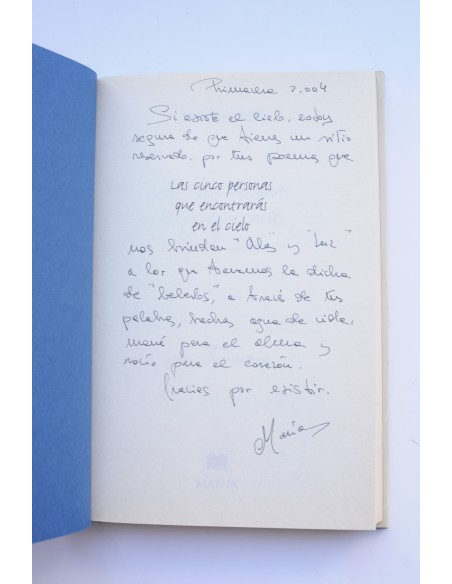 Primavera 2.004
Si existe el cielo, estoy
segura de que tienes un sitio
reservado. por tus poemas que
Las cinco personas
que encontrarás
en el cielo
nos brindan "Alas" y "Luz"
a los que tenemos la dicha
de "beberlos", a través de tus
palabras, hechas agua de vida,
maná para el alma y
rocío para el corazón.
Gracias por existir.
María
MAEVA